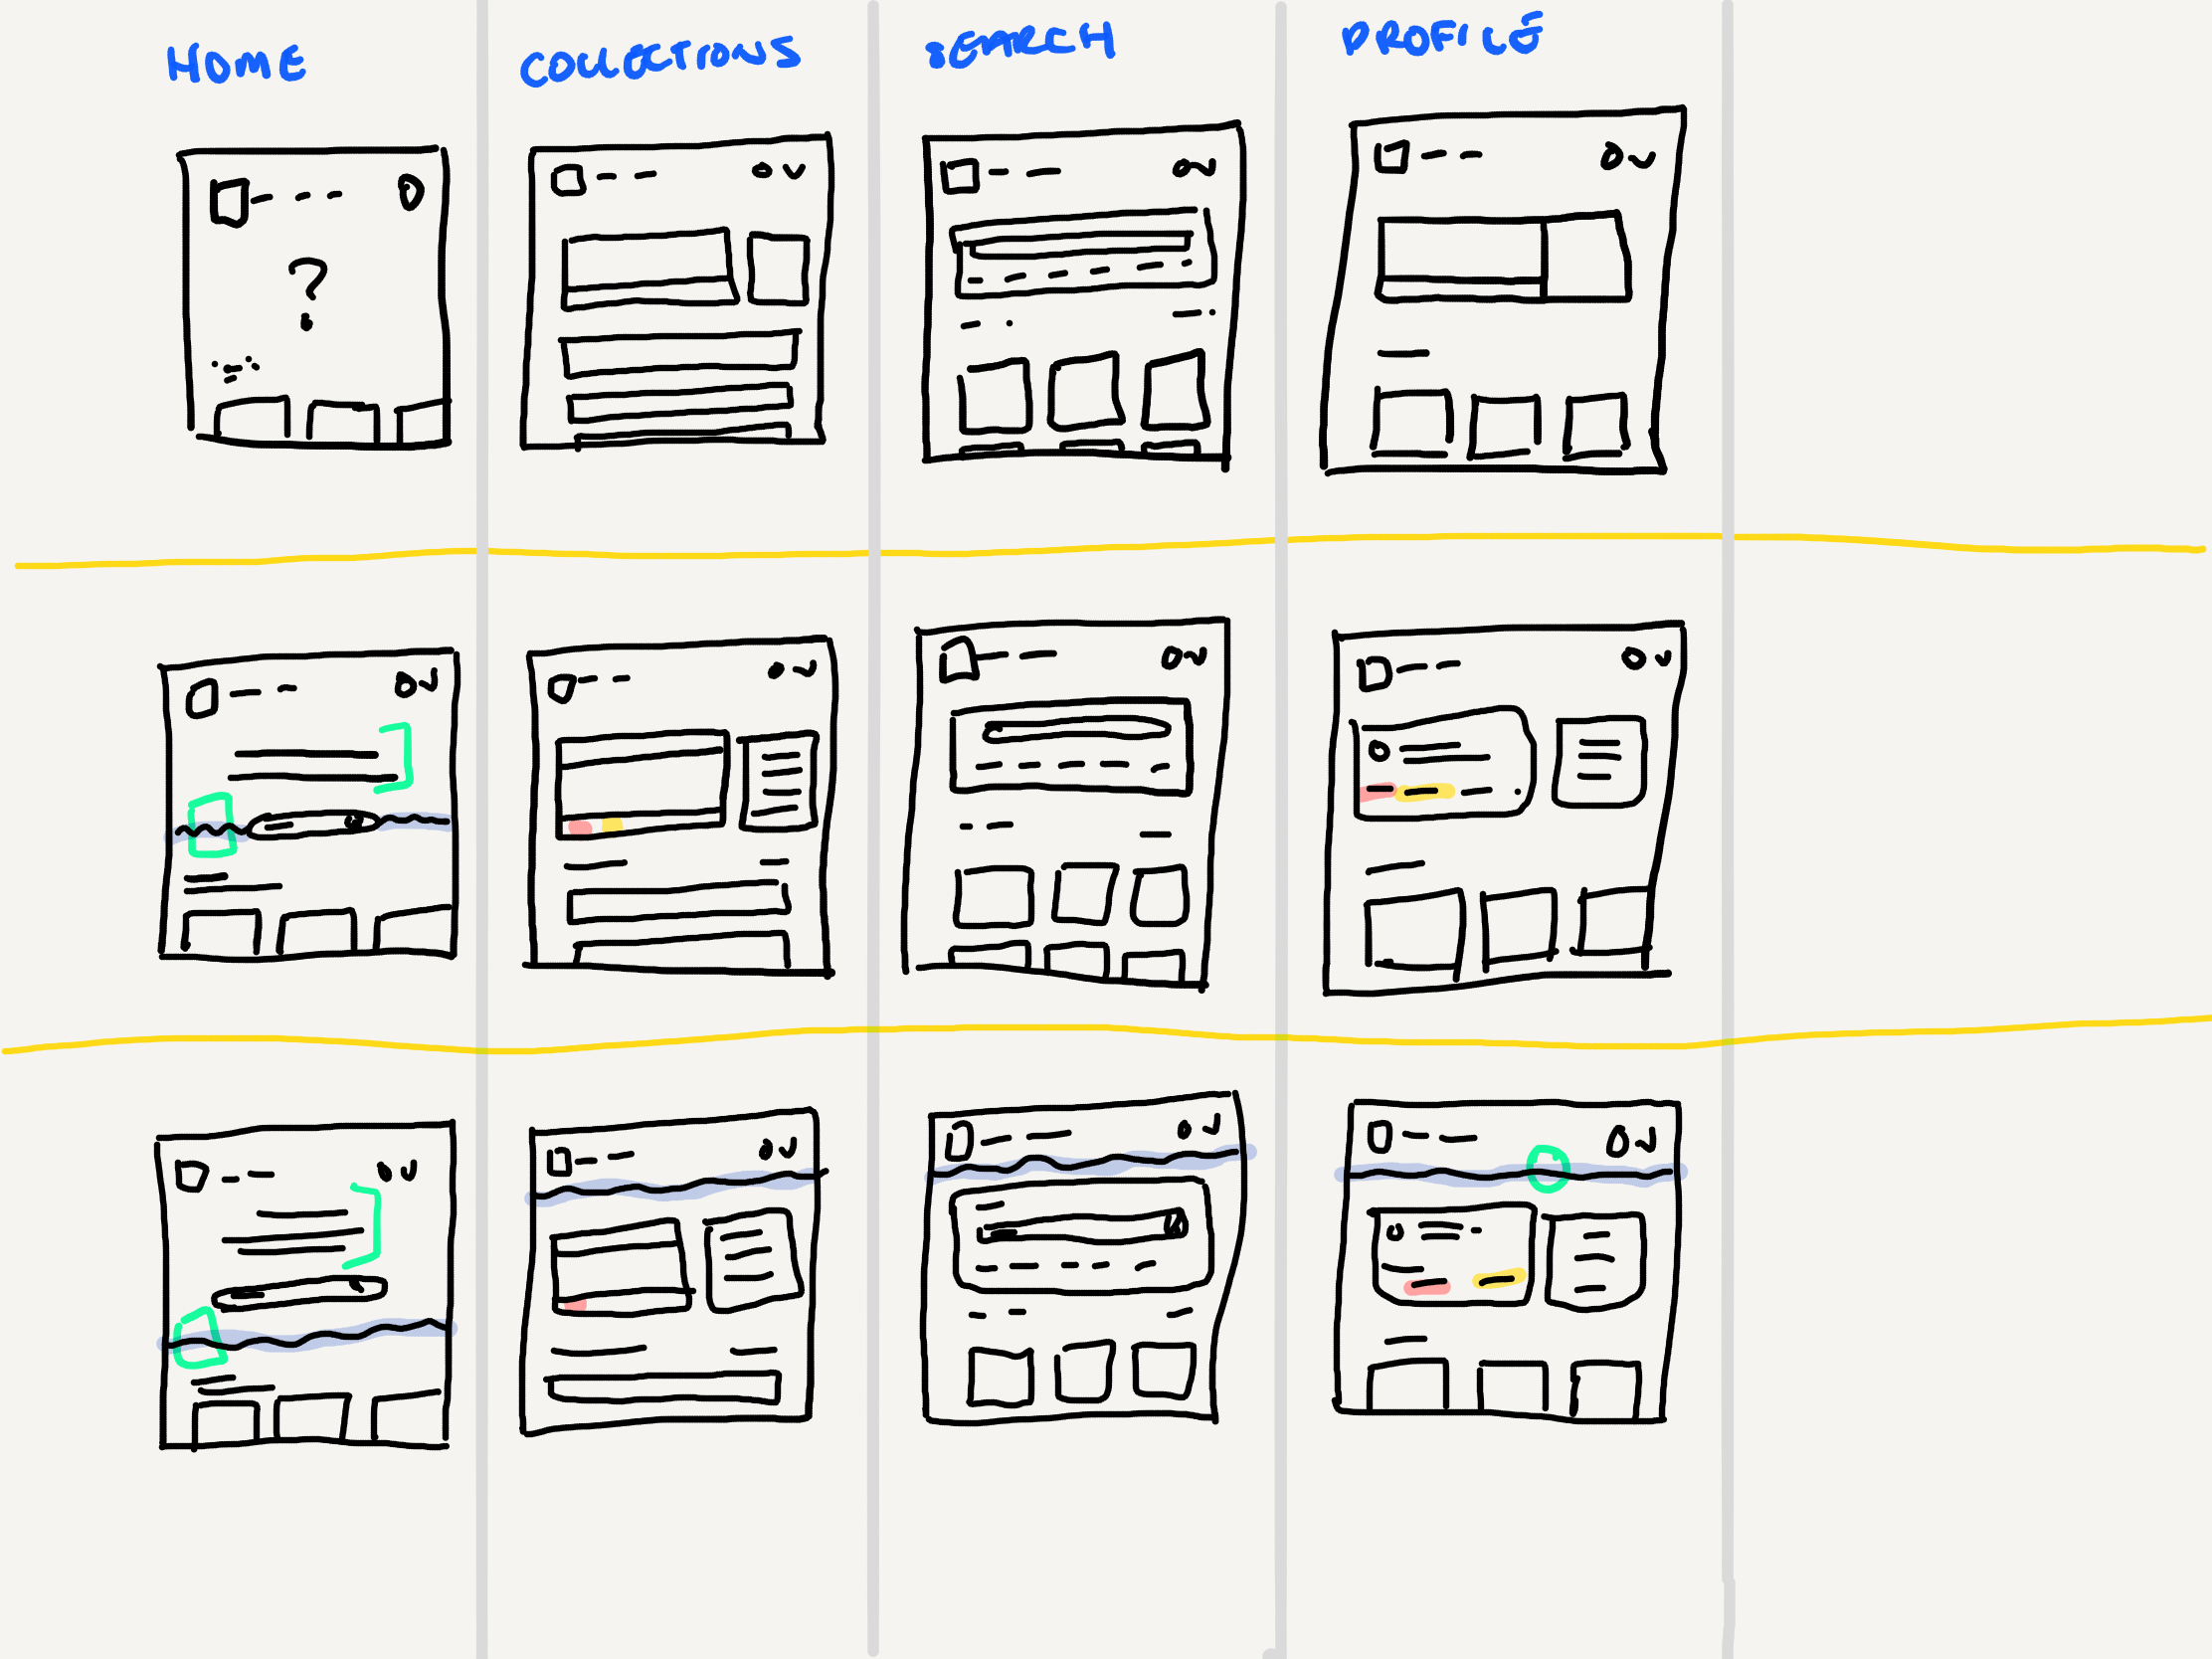 HOME
COLLECTIONS
SEARCH
PROFILE
?